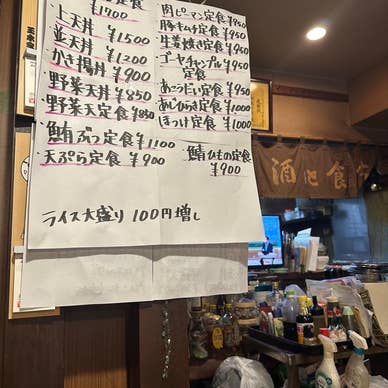 ¥1700
上天丼 ¥1500
並天丼 ¥1200
かき揚丼 ¥900
野菜天丼 ¥850
野菜天定食 ¥850
鮪ぶつ定食 ¥1100
天ぷら定食 ¥900
肉ピーマン定食 ¥950
豚キムチ定食 ¥950
生姜焼き定食 ¥950
ゴーヤチャンプル定食 ¥950
あこうだい定食 ¥950
あじひらき定食 ¥1000
ほっけ定食 ¥1000
鯖ひもの定食
¥900
ライス大盛り 100円増し
酒 食